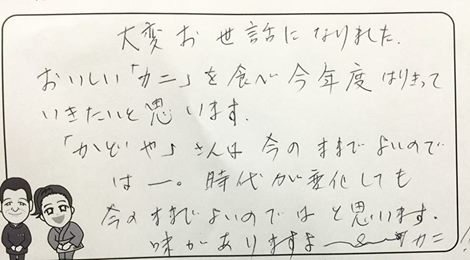 大変お世話になりました.
おいしい「カニ」を食べ今年度はりきって
いきたいと思います.
「かどや」さんは今のままでよいので
は一。時代が変化しても
今のままでよいのではと思います.
味がありますよ〜 カニ!